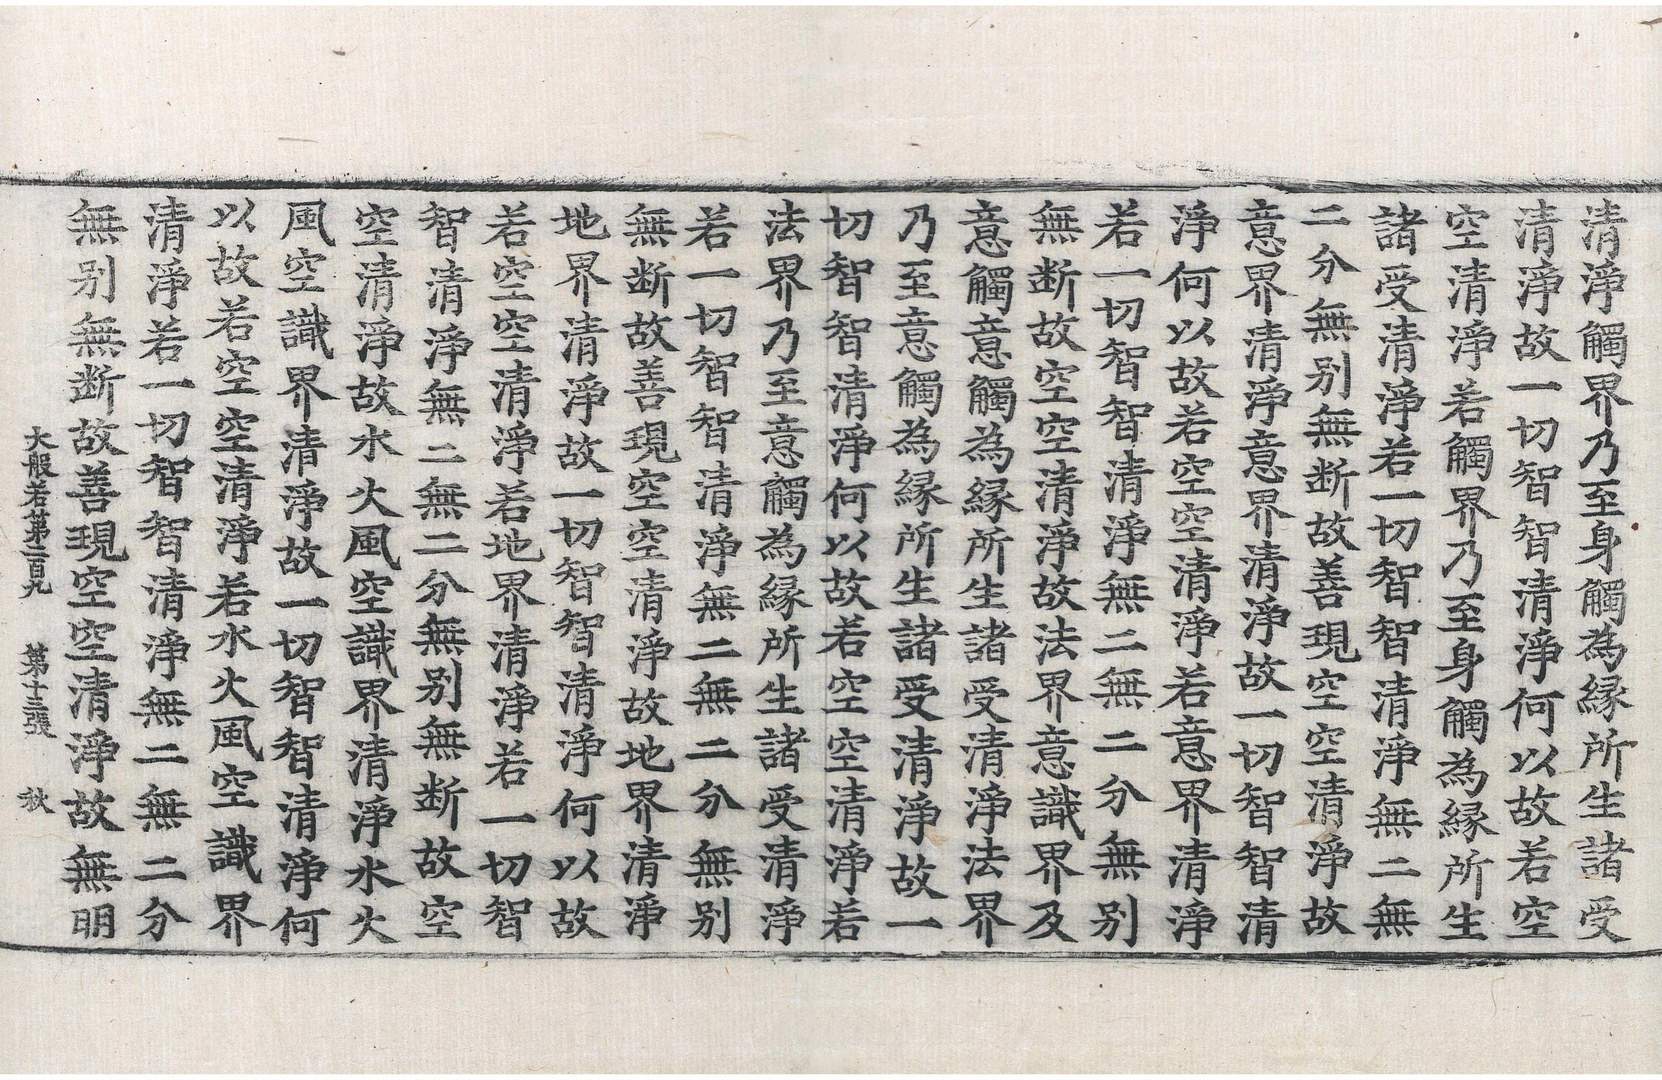 清淨觸界乃至身觸為縁所生諸受
清淨故一切智智清淨何以故若空
空清淨若觸界乃至身觸為縁所生
諸受清淨若一切智智清淨無二無
二分無别無断故善現空空清淨故
意界清淨意界清淨故一切智智清
淨何以故若空空清淨若意界清淨
若一切智智清淨無二無二分無别
無断故空空清淨故法界意識界及
意觸意觸為縁所生諸受清淨法界
乃至意觸為縁所生諸受清淨故一
切智智清淨何以故若空空清淨若
法界乃至意觸為縁所生諸受清淨
若一切智智清淨無二無二分無别
無断故善現空空清淨故地界清淨
地界清淨故一切智智清淨何以故
若空空清淨若地界清淨若一切智
智清淨無二無二分無别無断故空
空清淨故水火風空識界清淨水火
風空識界清淨故一切智智清淨何
以故若空空清淨若水火風空識界
清淨若一切智智清淨無二無二分
無别無断故善現空空清淨故無明
大般若第二百九　第十三張　秋